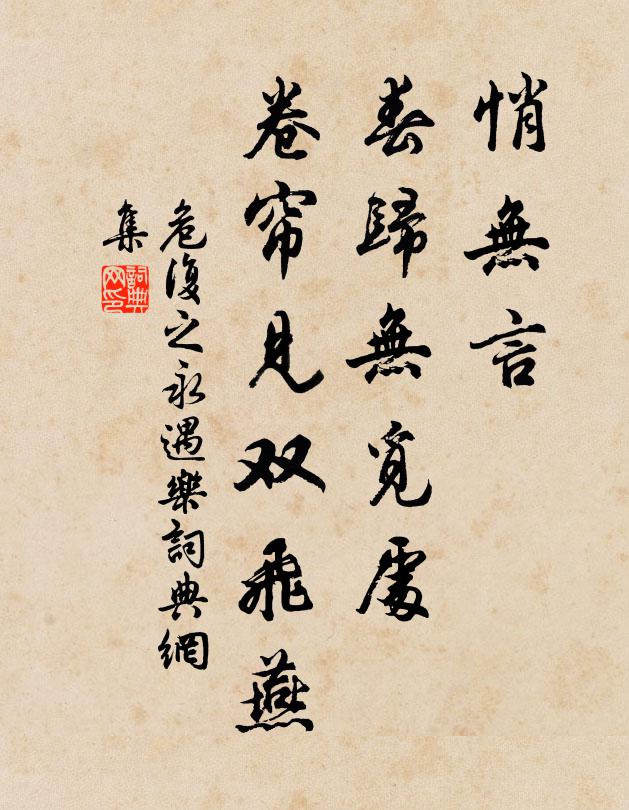 悄無言
春歸無覓處
卷帘見双飛燕
危復之永遇樂詞典網
集
詞典网印